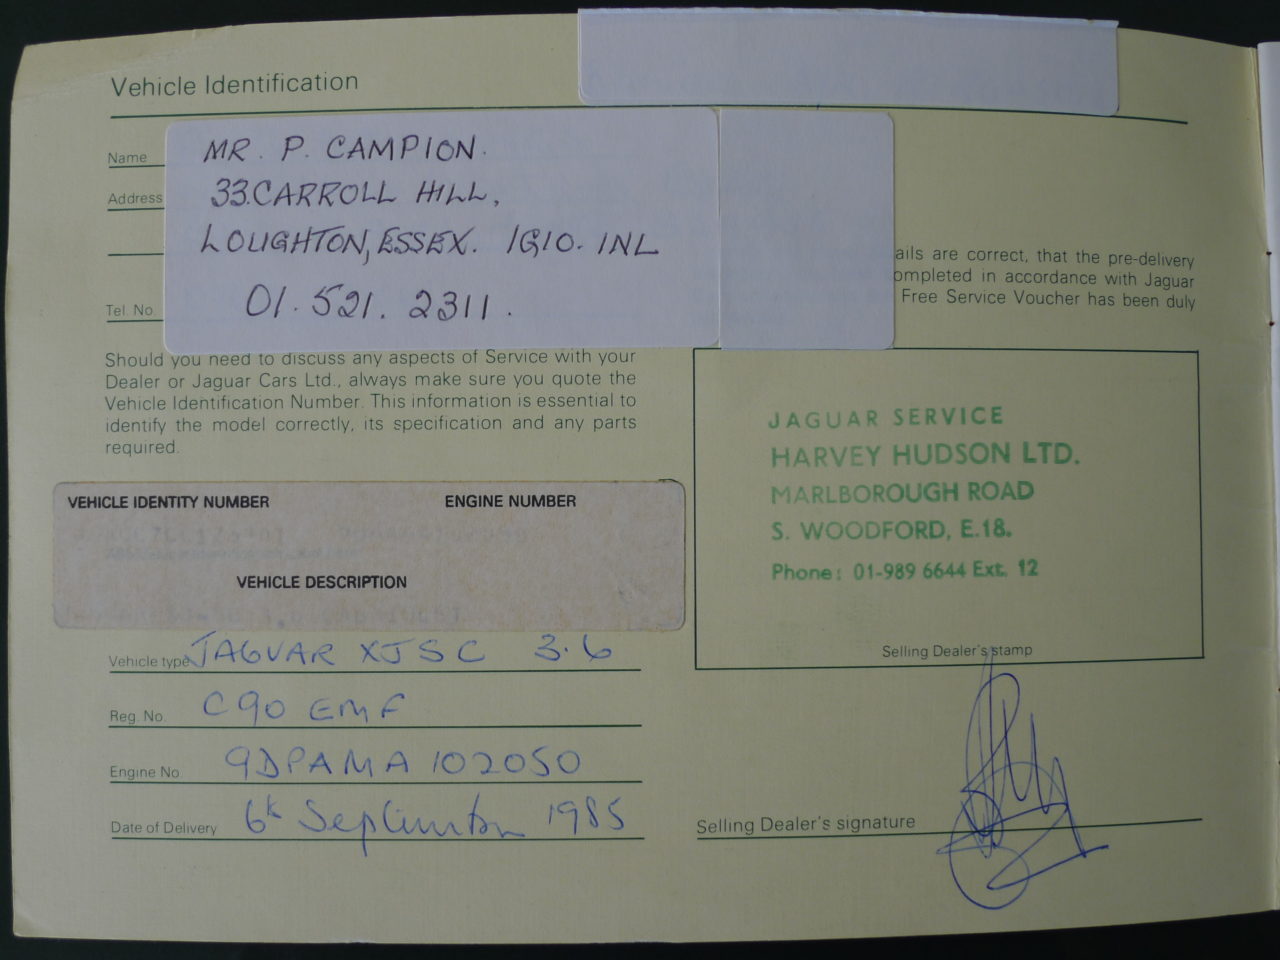 Vehicle Identification
Name
MR. P. CAMPION.
Address
33.CARROLL HILL,
LOUGHTON, ESSEX. IG10. 1NL
Tel. No.
01.521. 2311.
ails are correct, that the pre-delivery
ompleted in accordance with Jaguar
Free Service Voucher has been duly
Should you need to discuss any aspects of Service with your
Dealer or Jaguar Cars Ltd., always make sure you quote the
Vehicle Identification Number. This information is essential to
identify the model correctly, its specification and any parts
required.
VEHICLE IDENTITY NUMBER ENGINE NUMBER
VEHICLE DESCRIPTION
Vehicle type JAGUAR XJSC 3.6
Reg. No. C90 EMF
Engine No 9DPAMA 102050
Date of Delivery 6th September 1985
JAGUAR SERVICE
HARVEY HUDSON LTD.
MARLBOROUGH ROAD
S. WOODFORD, E.18.
Phone: 01-989 6644 Ext. 12
Selling Dealer's stamp
Selling Dealer's signature